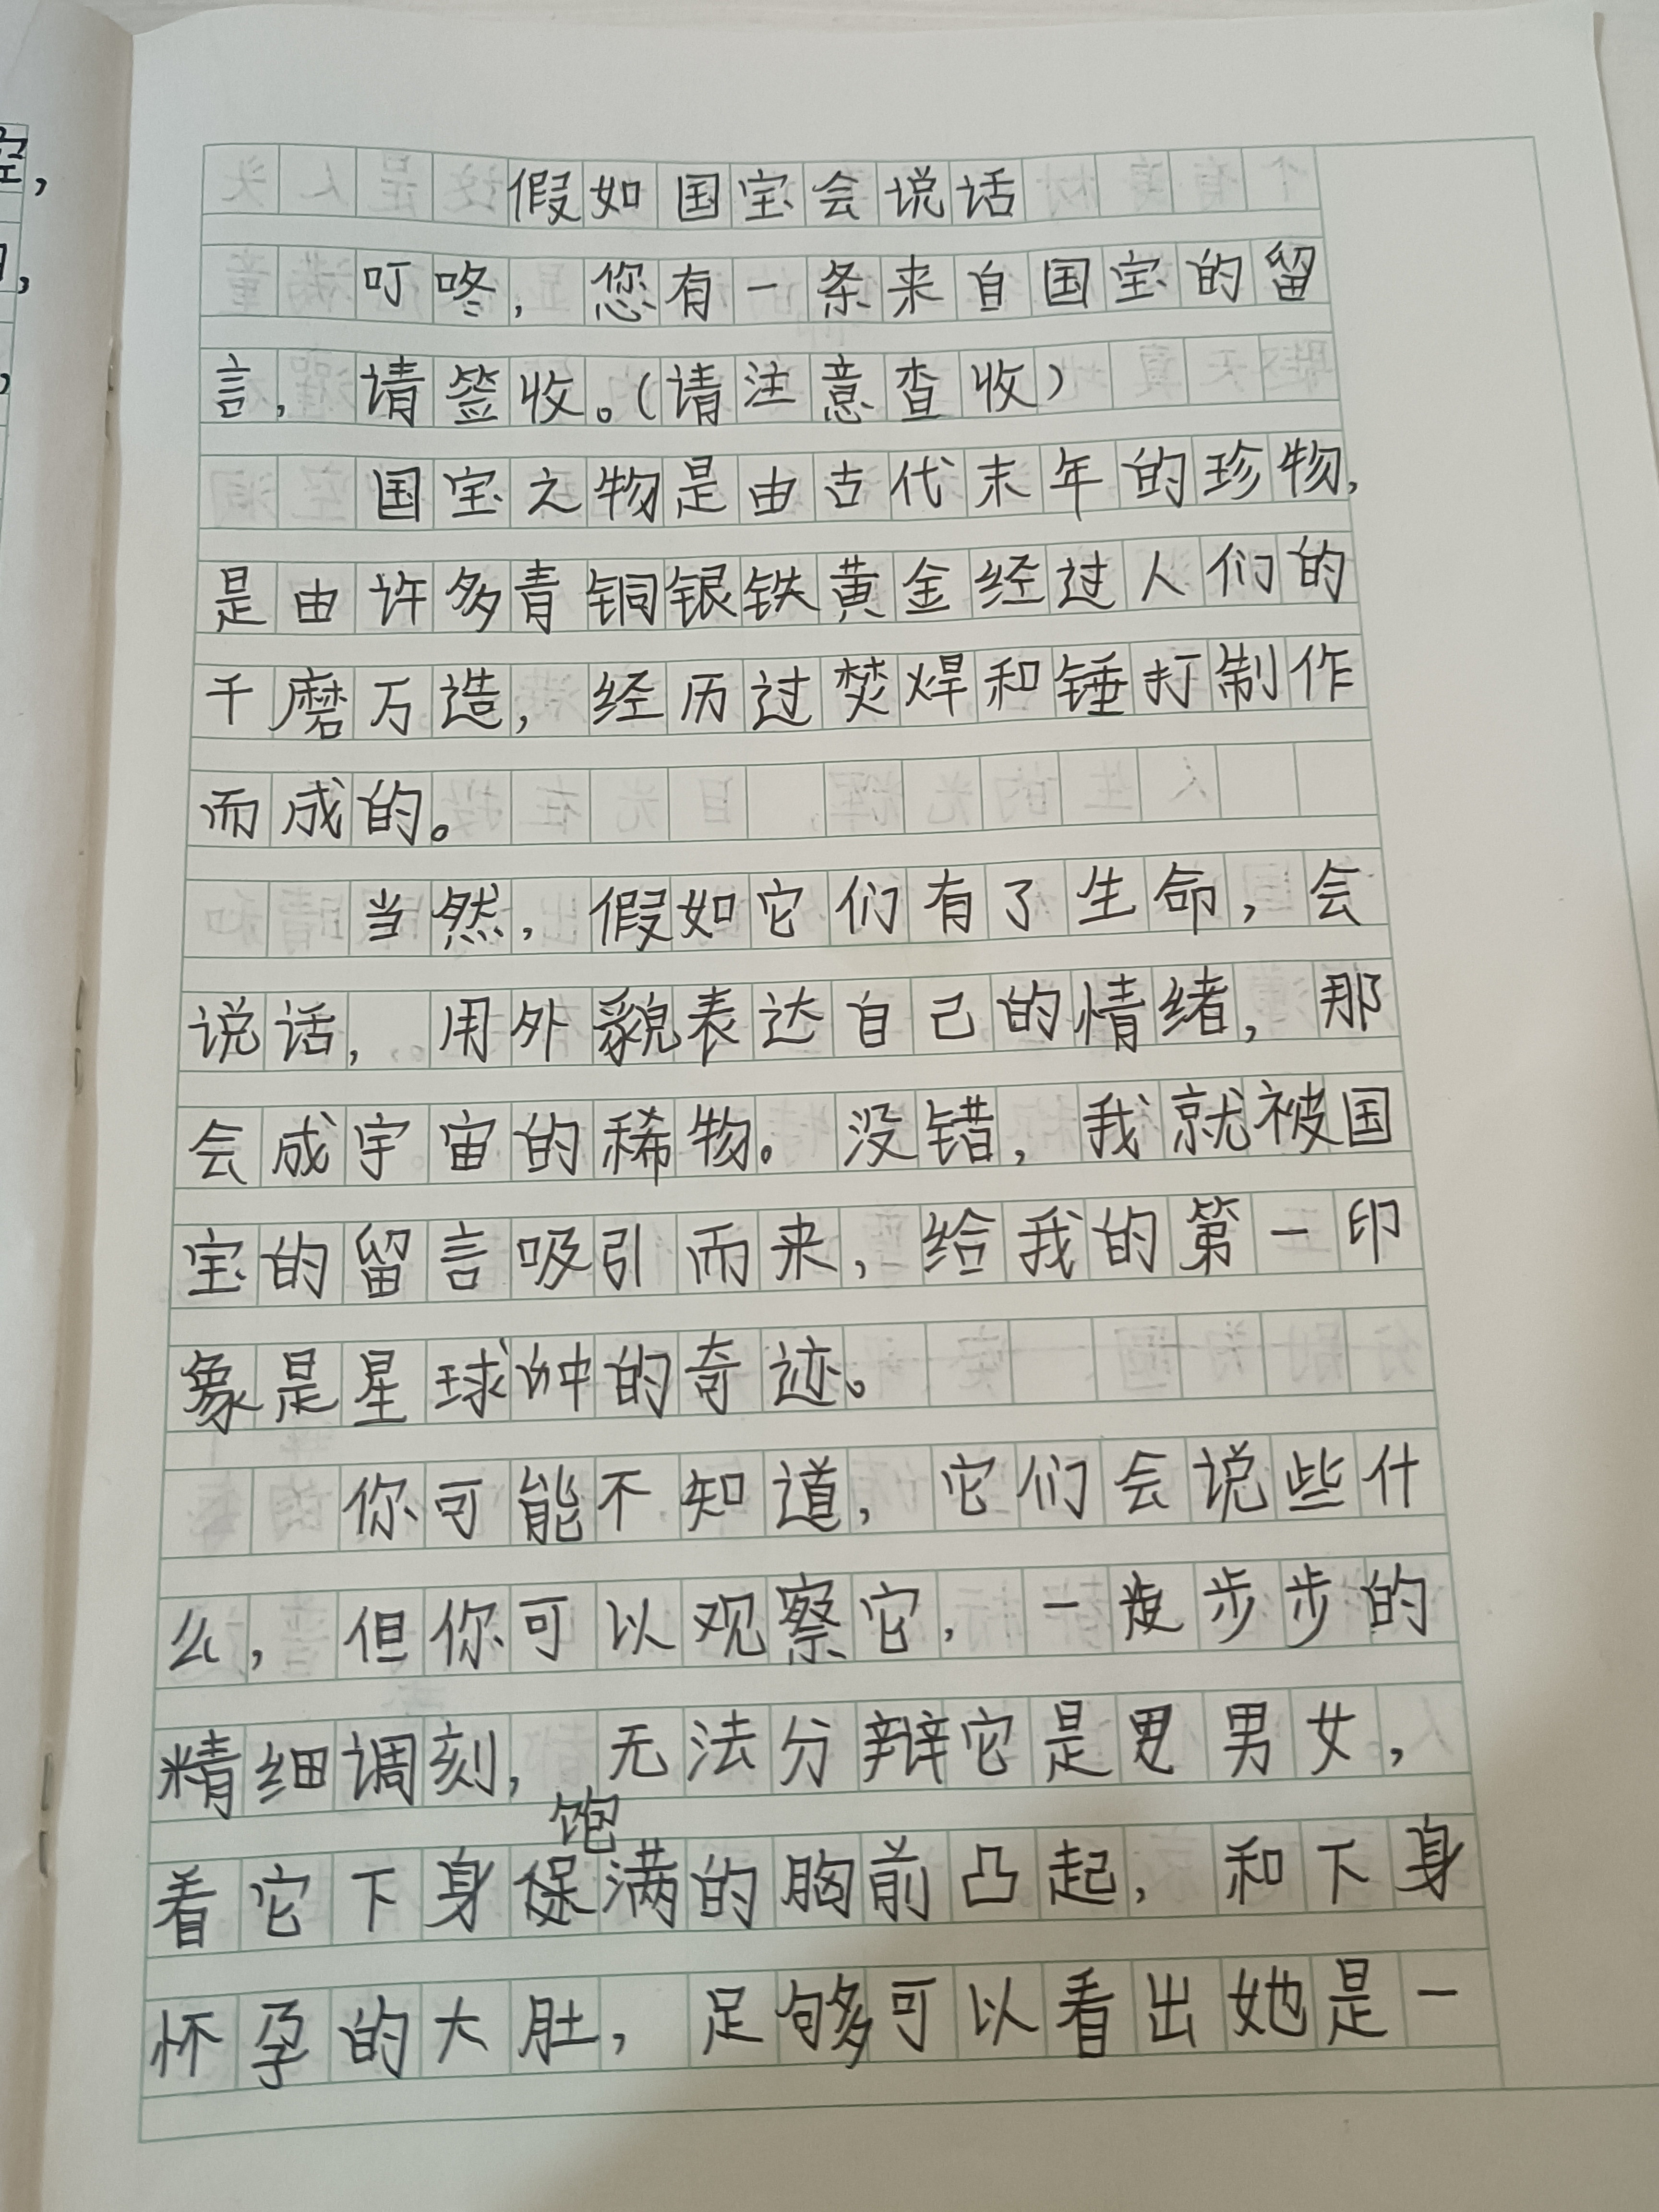 假如国宝会说话
叮咚，您有一条来自国宝的留
言，请签收。（请注意查收）
国宝之物是由古代末年的珍物，
是由许多青铜银铁黄金经过人们的
千磨万造，经历过焚焊和锤打制作
而成的。
当然，假如它们有了生命，会
说话，用外貌表达自己的情绪，那
会成宇宙的稀物。没错，我就被国
宝的留言吸引而来，给我的第一印
象是星球的奇迹。
你可能不知道，它们会说些什
么，但你可以观察它，一步步的
精细调刻，无法分辩它是男女，
饱
看它下身满的胸前凸起，和下身
怀孕的大肚，足够可以看出她是一